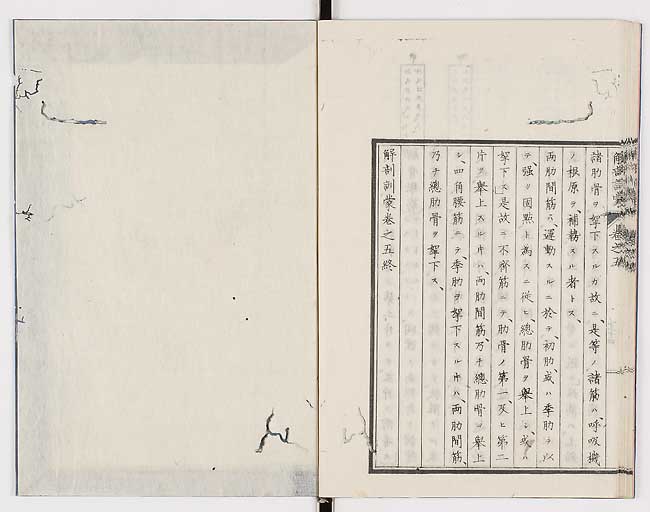 諸肋骨ヲ挈下スルカ故ニ、是等ノ諸筋ハ、呼吸機
ノ根原ヲ補務スル者トス、
両肋間筋ハ、運動スルニ於テ、初肋或ハ季肋ヲ以
テ、強リ固點ト為スニ從ヒ、總肋骨ヲ舉上シ、或ハ
挈下ス、是故ニ不齊筋ニテ、肋骨ノ第一及ヒ第二
片ヲ舉上スル片ハ、両肋間筋、乃チ總肋骨ヲ舉上
シ、四角腰筋ニテ、季肋ヲ挈下スル片ハ、両肋間筋、
乃チ總肋骨ヲ挈下ス、
解剖訓蒙卷之五終